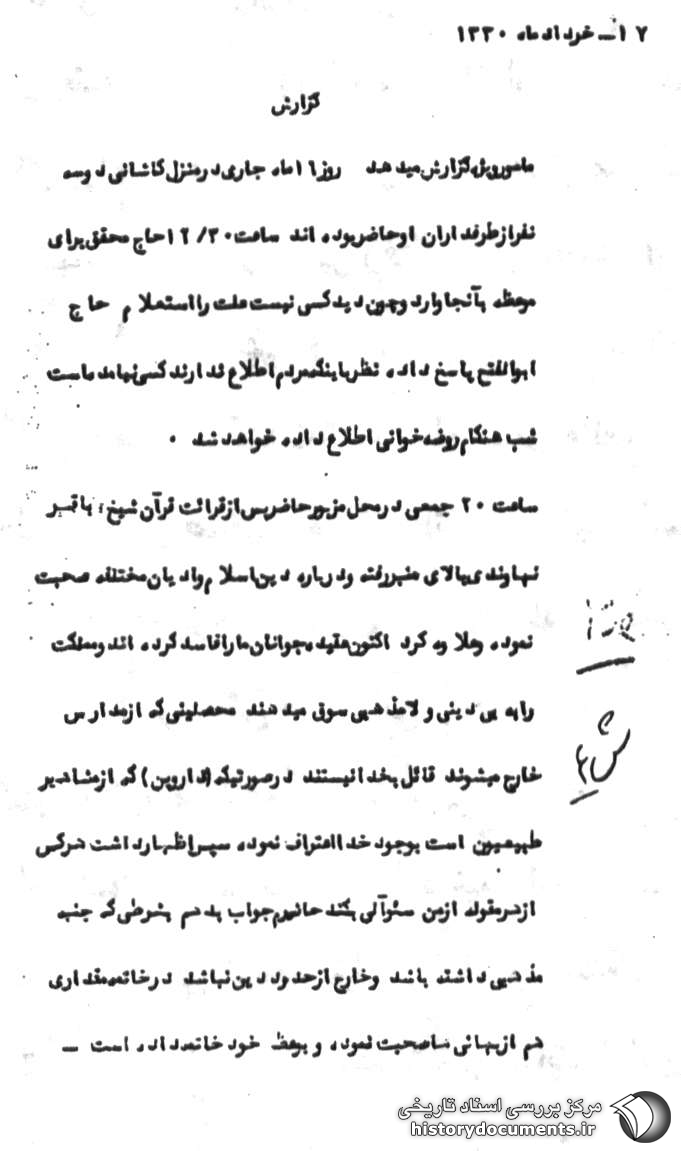 ۱۷ـ خرداد ماه ۱۳۳۰
گزارش
مامور ویژه گزارش میدهد روز ۱۶ ماه جاری در منزل کاشانی دوسه
نفر از طرفداران او حاضر بوده اند ساعت ۱۶/۳۰ حاج محقق برای
موعظه بآنجا وارد و چون دید کسی نیست علت را استعلام حاج
ابوالفتح پاسخ داده نظر باینکه مردم اطلاع ندارند کسی نیامده است
شب هنگام روضه خوانی اطلاع داده خواهد شد ۰
ساعت ۲۰ جمعی در محل مزبور حاضر پس از قرائت قرآن شیخ باقر
نهاوندی بالای منبر رفته و درباره دین اسلام و ادیان مختلفه صحبت
نموده و علاوه کرد اکنون عقیده جوانان ما را فاسد کرده اند و مملکت
را به بی دینی و لامذهبی سوق میدهند محصلینی که از مدارس
خارج میشوند قائل بخدا نیستند در صورتیکه (داروین) که از مشاهیر
طبیعیون است بوجود خدا اعتراف نموده سپس اظهار داشت هرکس
از هر مقوله از من سئوآلی بکند حاضرم جواب بدهم بشرطی که جنبه
مذهبی داشته باشد و خارج از حدود دین نباشد در خاتمه مقداری
هم از بهائی ها صحبت نموده و بوعظ خود خاتمه داده است ـ
مرکز بررسی اسناد تاریخی
historydocuments.ir